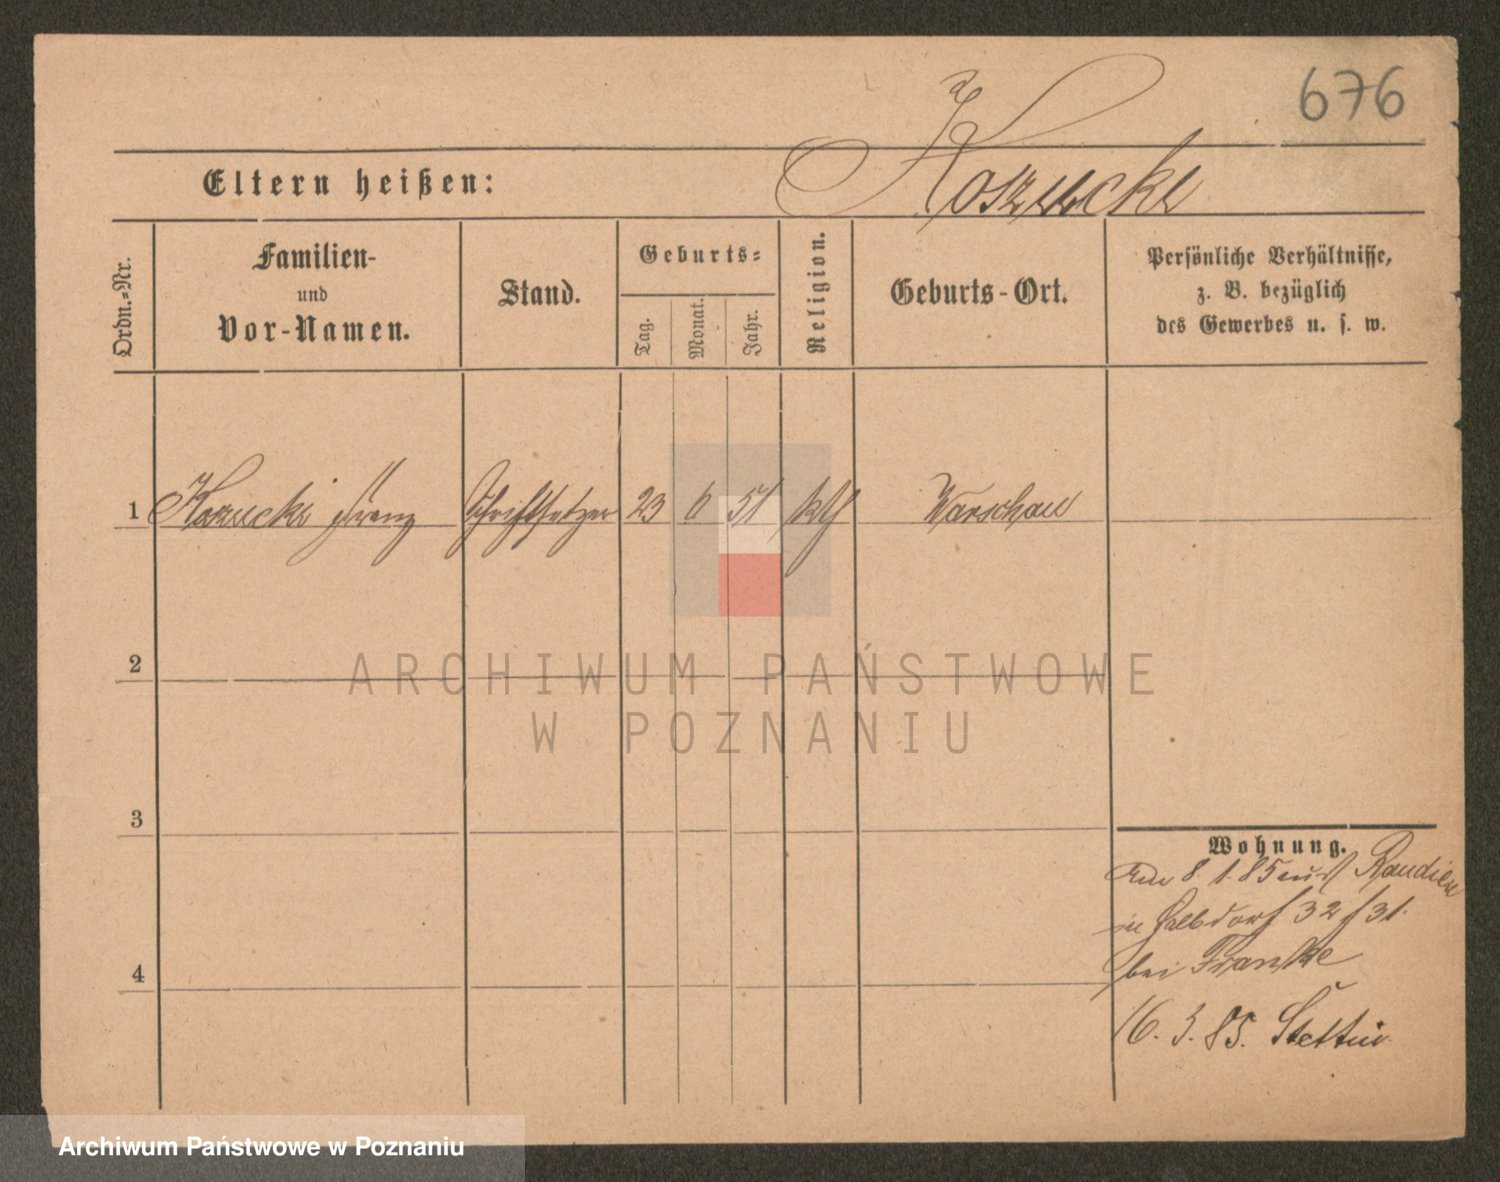 676
Eltern heißen:
Ordn.=Nr.
Familien-
und
Vor-Namen.
Stand.
Geburts=
Tag.
Monat.
Jahr.
Religion.
Geburts-Ort.
Persönliche Verhältnisse,
z. B. bezüglich
des Gewerbes u. s. w.
1 Franz Schriftsetzer 23 6 51 kth Warschau
2
ARCHIWUM PAŃSTWOWE
W POZNANIU
3
4
Wohnung.
8 1. 85
in 32 31.
bei Franke
16. 3. 85. Stettin
Archiwum Państwowe w Poznaniu